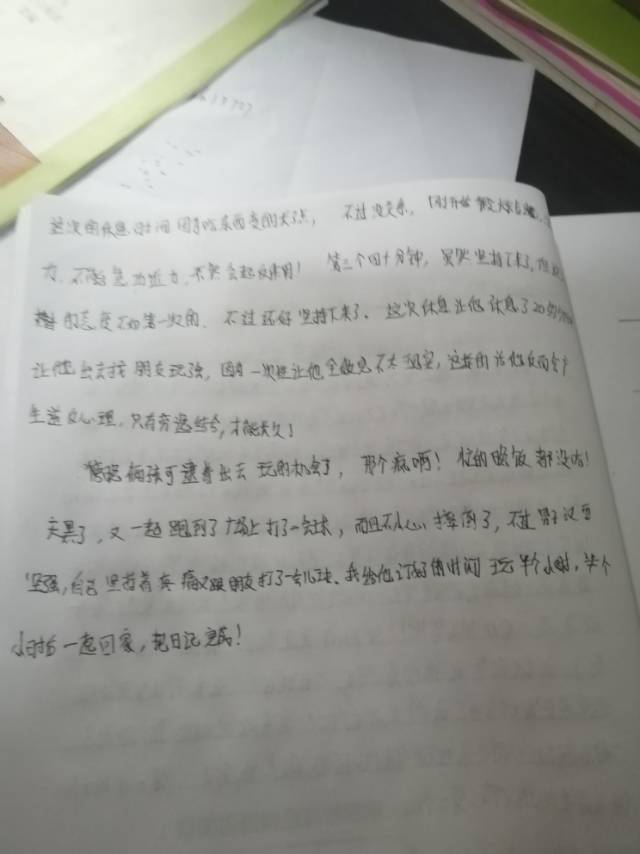 这次的休息时间因为吃东西变的长了点，不过没关系，刚开始
力，不能急功近力，不然会起反作用！第三个四十分钟，虽然坚持下来了，但
的态度不如第一次的，不过还好坚持下来了。这次休息让他休息了20分钟
让他出去找朋友玩玩，因为一次性让他全做完不太现实，这样的话他反而会产
生逆反心理，只有劳逸结合，才能长久！
俩孩可逮着出去玩的机会了，那个疯啊！忙的晚饭都没吃！
天黑了，又一起跑到了广场上打了一会球，而且不小心摔倒了，不过男子汉要
坚强，自己坚持着疼痛又跟朋友打了一会儿球。我给他订好的时间玩半个小时，半个
小时后一起回家，把日记完成！